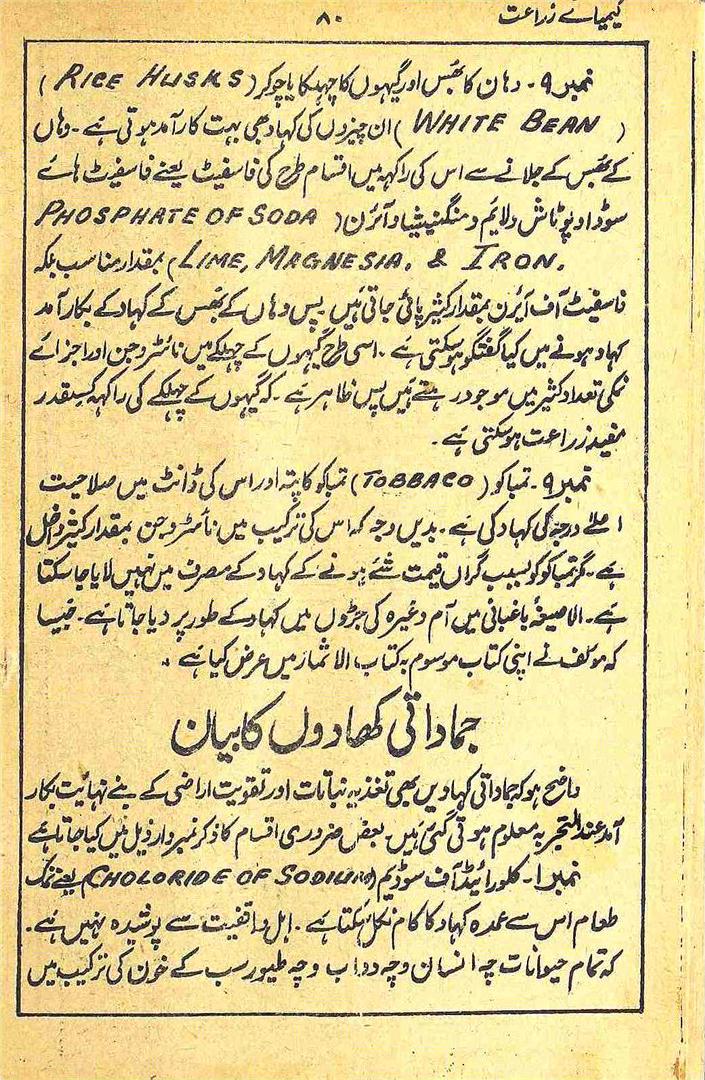 کیمیاے زراعت
۸۰
نمبر ۹۔ دہان کا بھس اور گیہوں کا چھلکا یا چوکر (RICE HUSKS)
(WHITE BEAN) ان چیزوں کی کہاد بھی بہت کارآمد ہوتی ہے۔ دہاں
کے بھس کے جلانے سے اس کی راکہہ میں اقسام طرح کی فاسفیٹ یعنے فاسفیٹ ہاے
سوڈا و پوٹاش و لایم و منگنیشیا و آئرن (PHOSPHATE OF SODA
LIME, MAGNESIA, & IRON.) بمقدار مناسب بلکہ
فاسفیٹ آف آیرن بمقدار کثیر پائی جاتی ہیں۔ پس دہاں کے بھس کے کہاد کے بکار آمد
کہاد ہونے میں کیا گفتگو ہوسکتی ہے۔ اسی طرح گیہوں کے چھلکے میں نائٹروجن اور اجزائے
نمکی تعداد کثیر میں موجود رہتے ہیں پس ظاہر ہے۔ کہ گیہوں کے چھلکے کی راکہہ کسقدر
مفید زراعت ہوسکتی ہے۔
نمبر ۹۔ تمباکو (TOBBACO) تمباکو کا پتہ اور اس کی ڈانٹ میں صلاحیت
اعلے درجہ کی کہاد کی ہے۔ بدیں وجہ کہ اس کی ترکیب میں نائٹروجن بمقدار کثیر داخل
ہے۔ مگر تمباکو کو بسبب گراں قیمت شئے ہونے کے کہاد کے مصرف میں نہیں لایا جاسکتا
ہے۔ الا صیغۂ باغبانی میں آم وغیرہ کی جڑوں میں کہاد کے طور پر دیا جاتا ہے۔ جیسا
کہ مولف نے اپنی کتاب موسوم بہ کتاب الاثمار میں عرض کیا ہے۔
جماداتی کھادوں کا بیان
واضح ہو کہ جماداتی کہادیں بھی تغذیہ نباتات اور تقویت اراضی کے لئے نہائیت بکار
آمد عند التجربہ معلوم ہوتی گئی ہیں۔ بعض ضروری اقسام کا ذکر نمبردار ذیل میں کیا جاتا ہے
نمبر ۱۔ کلورائیڈ آف سوڈیم (CHOLORIDE OF SODIUM) یعنے نمک
طعام اس سے عمدہ کہاد کا کام نکل سکتا ہے۔ اہل واقفیت سے پوشیدہ نہیں ہے۔
کہ تمام حیوانات چہ انسان وچہ دواب وچہ طیور سب کے خون کی ترکیب میں